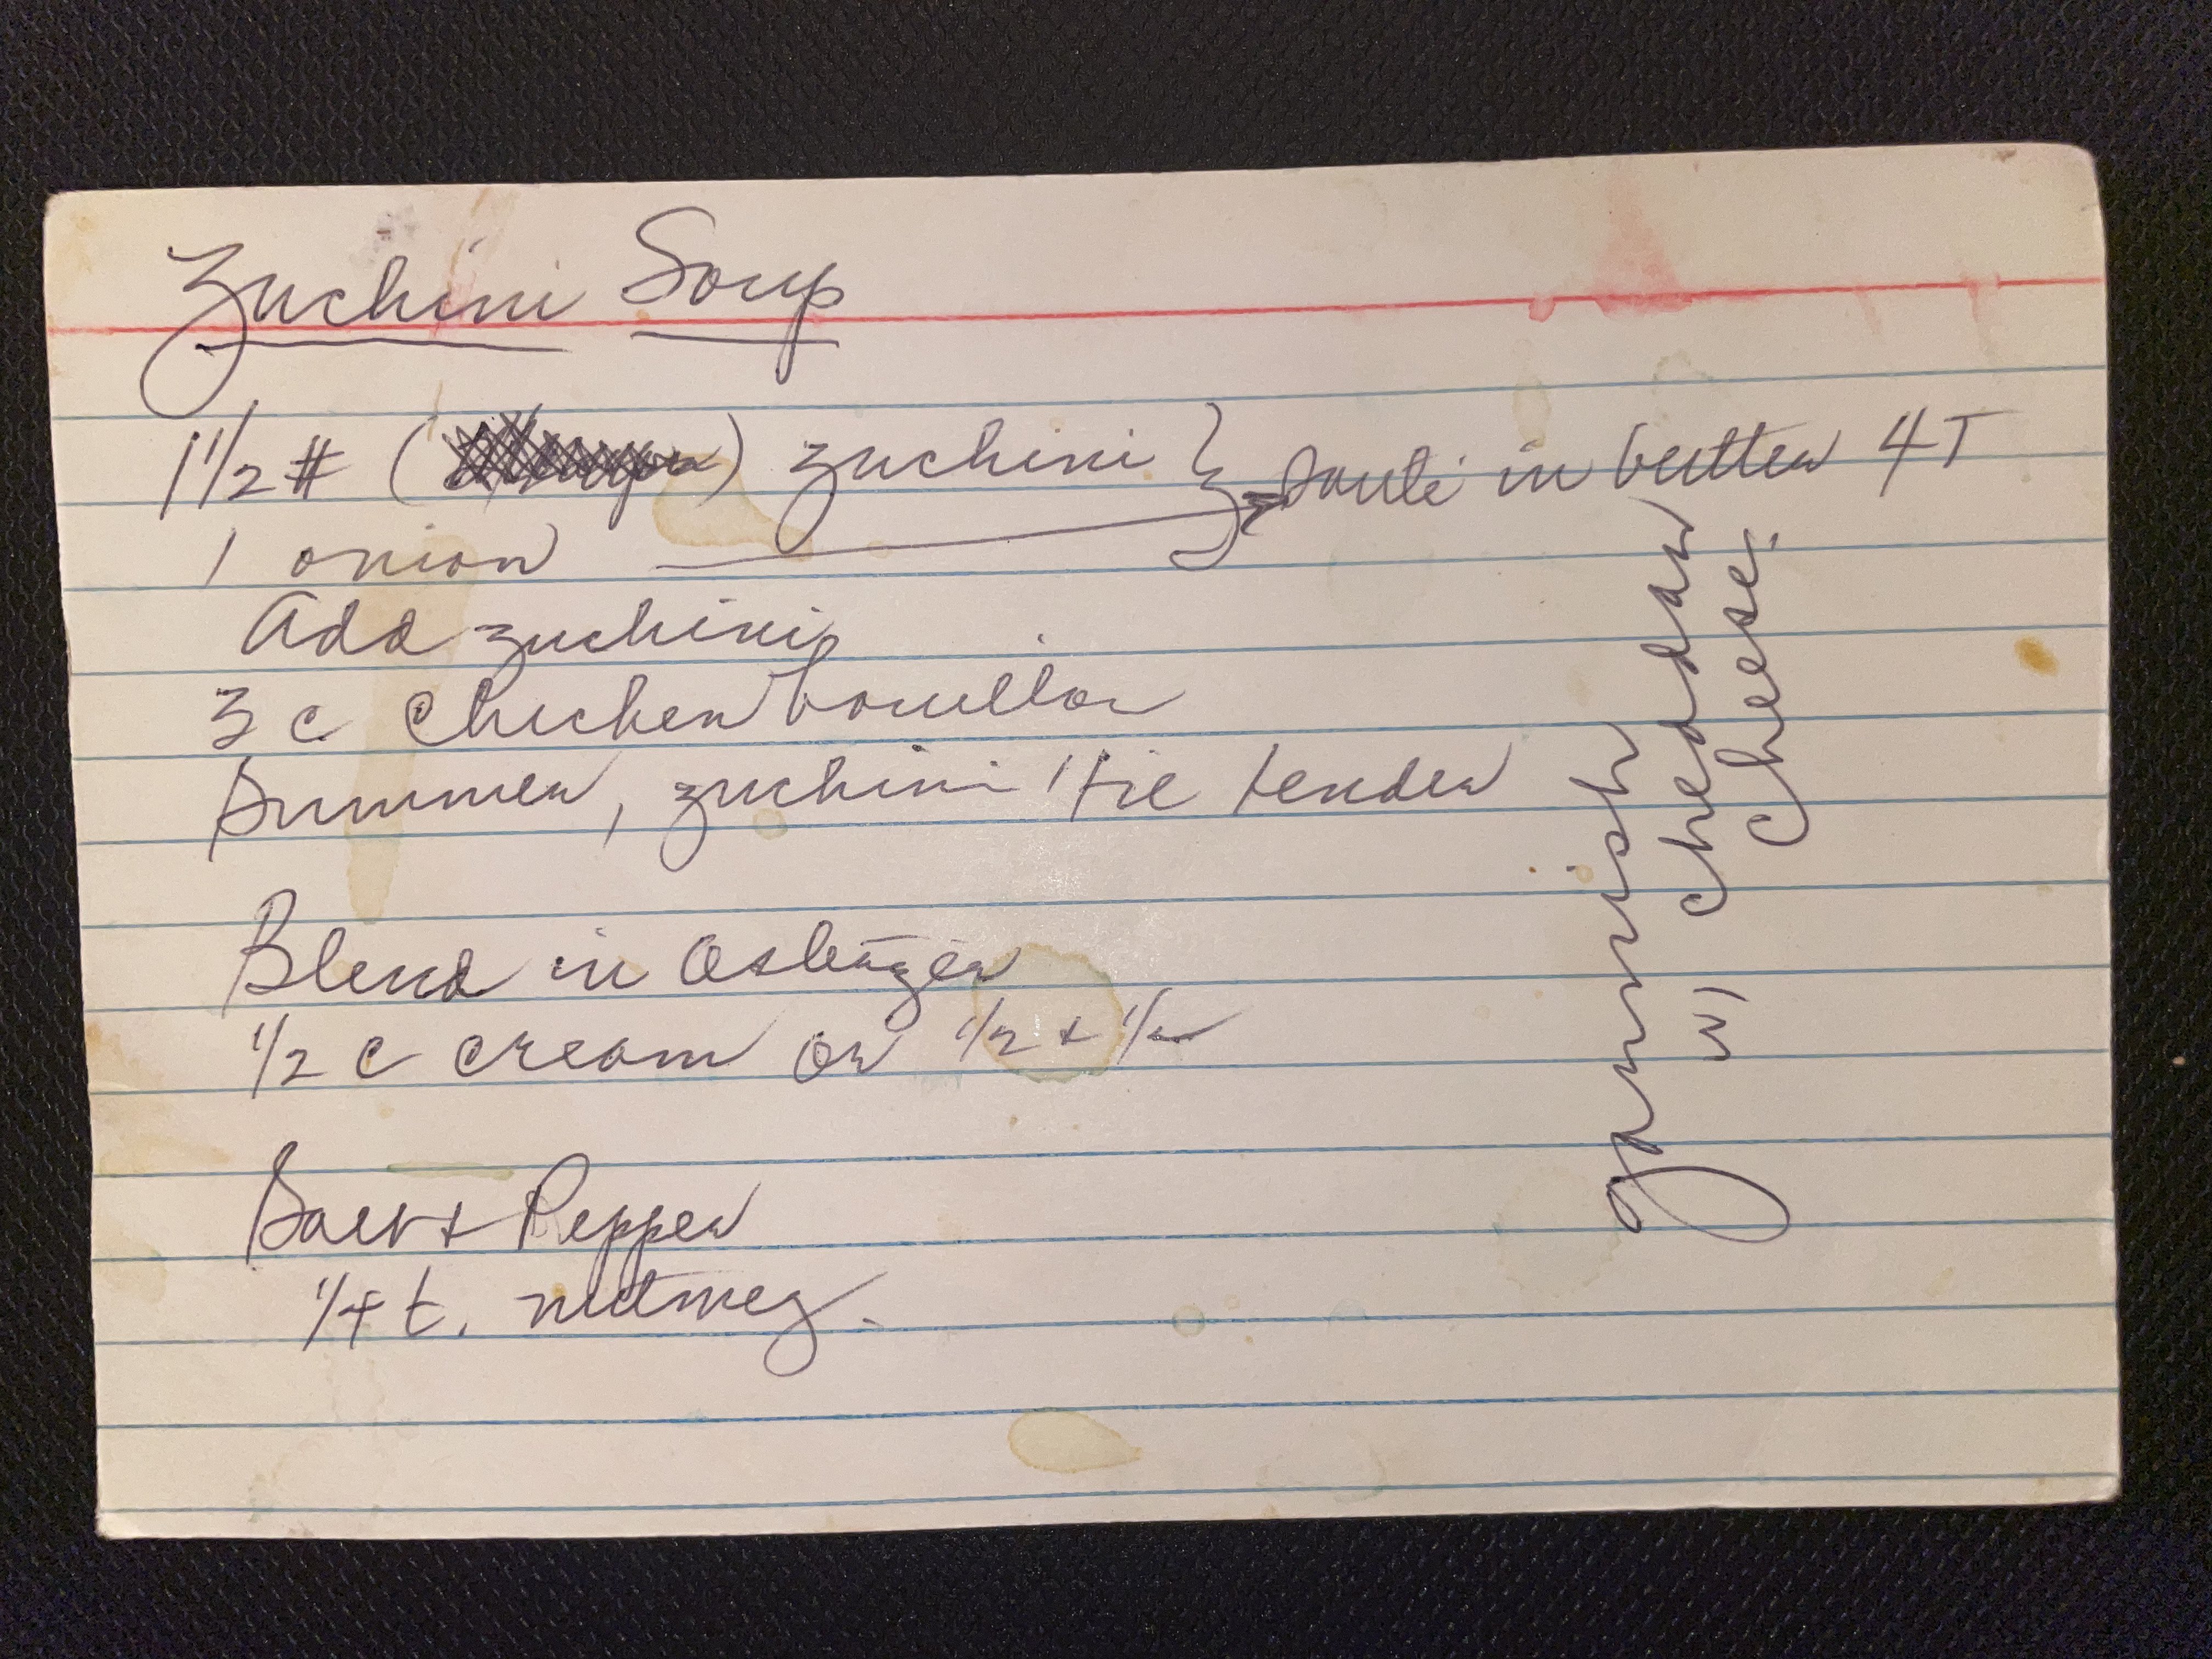 Zuchini Soup
1 1/2 # ( ) zuchini } sauté in butter 4T
1 onion
Add zuchini
3 c chicken bouillon
Simmer, zuchini 'til tender
Blend in Osterizer
1/2 c cream or 1/2 + 1/2
Salt + Pepper
1/4 t. nutmeg.
garnish
w/ cheddar
cheese.